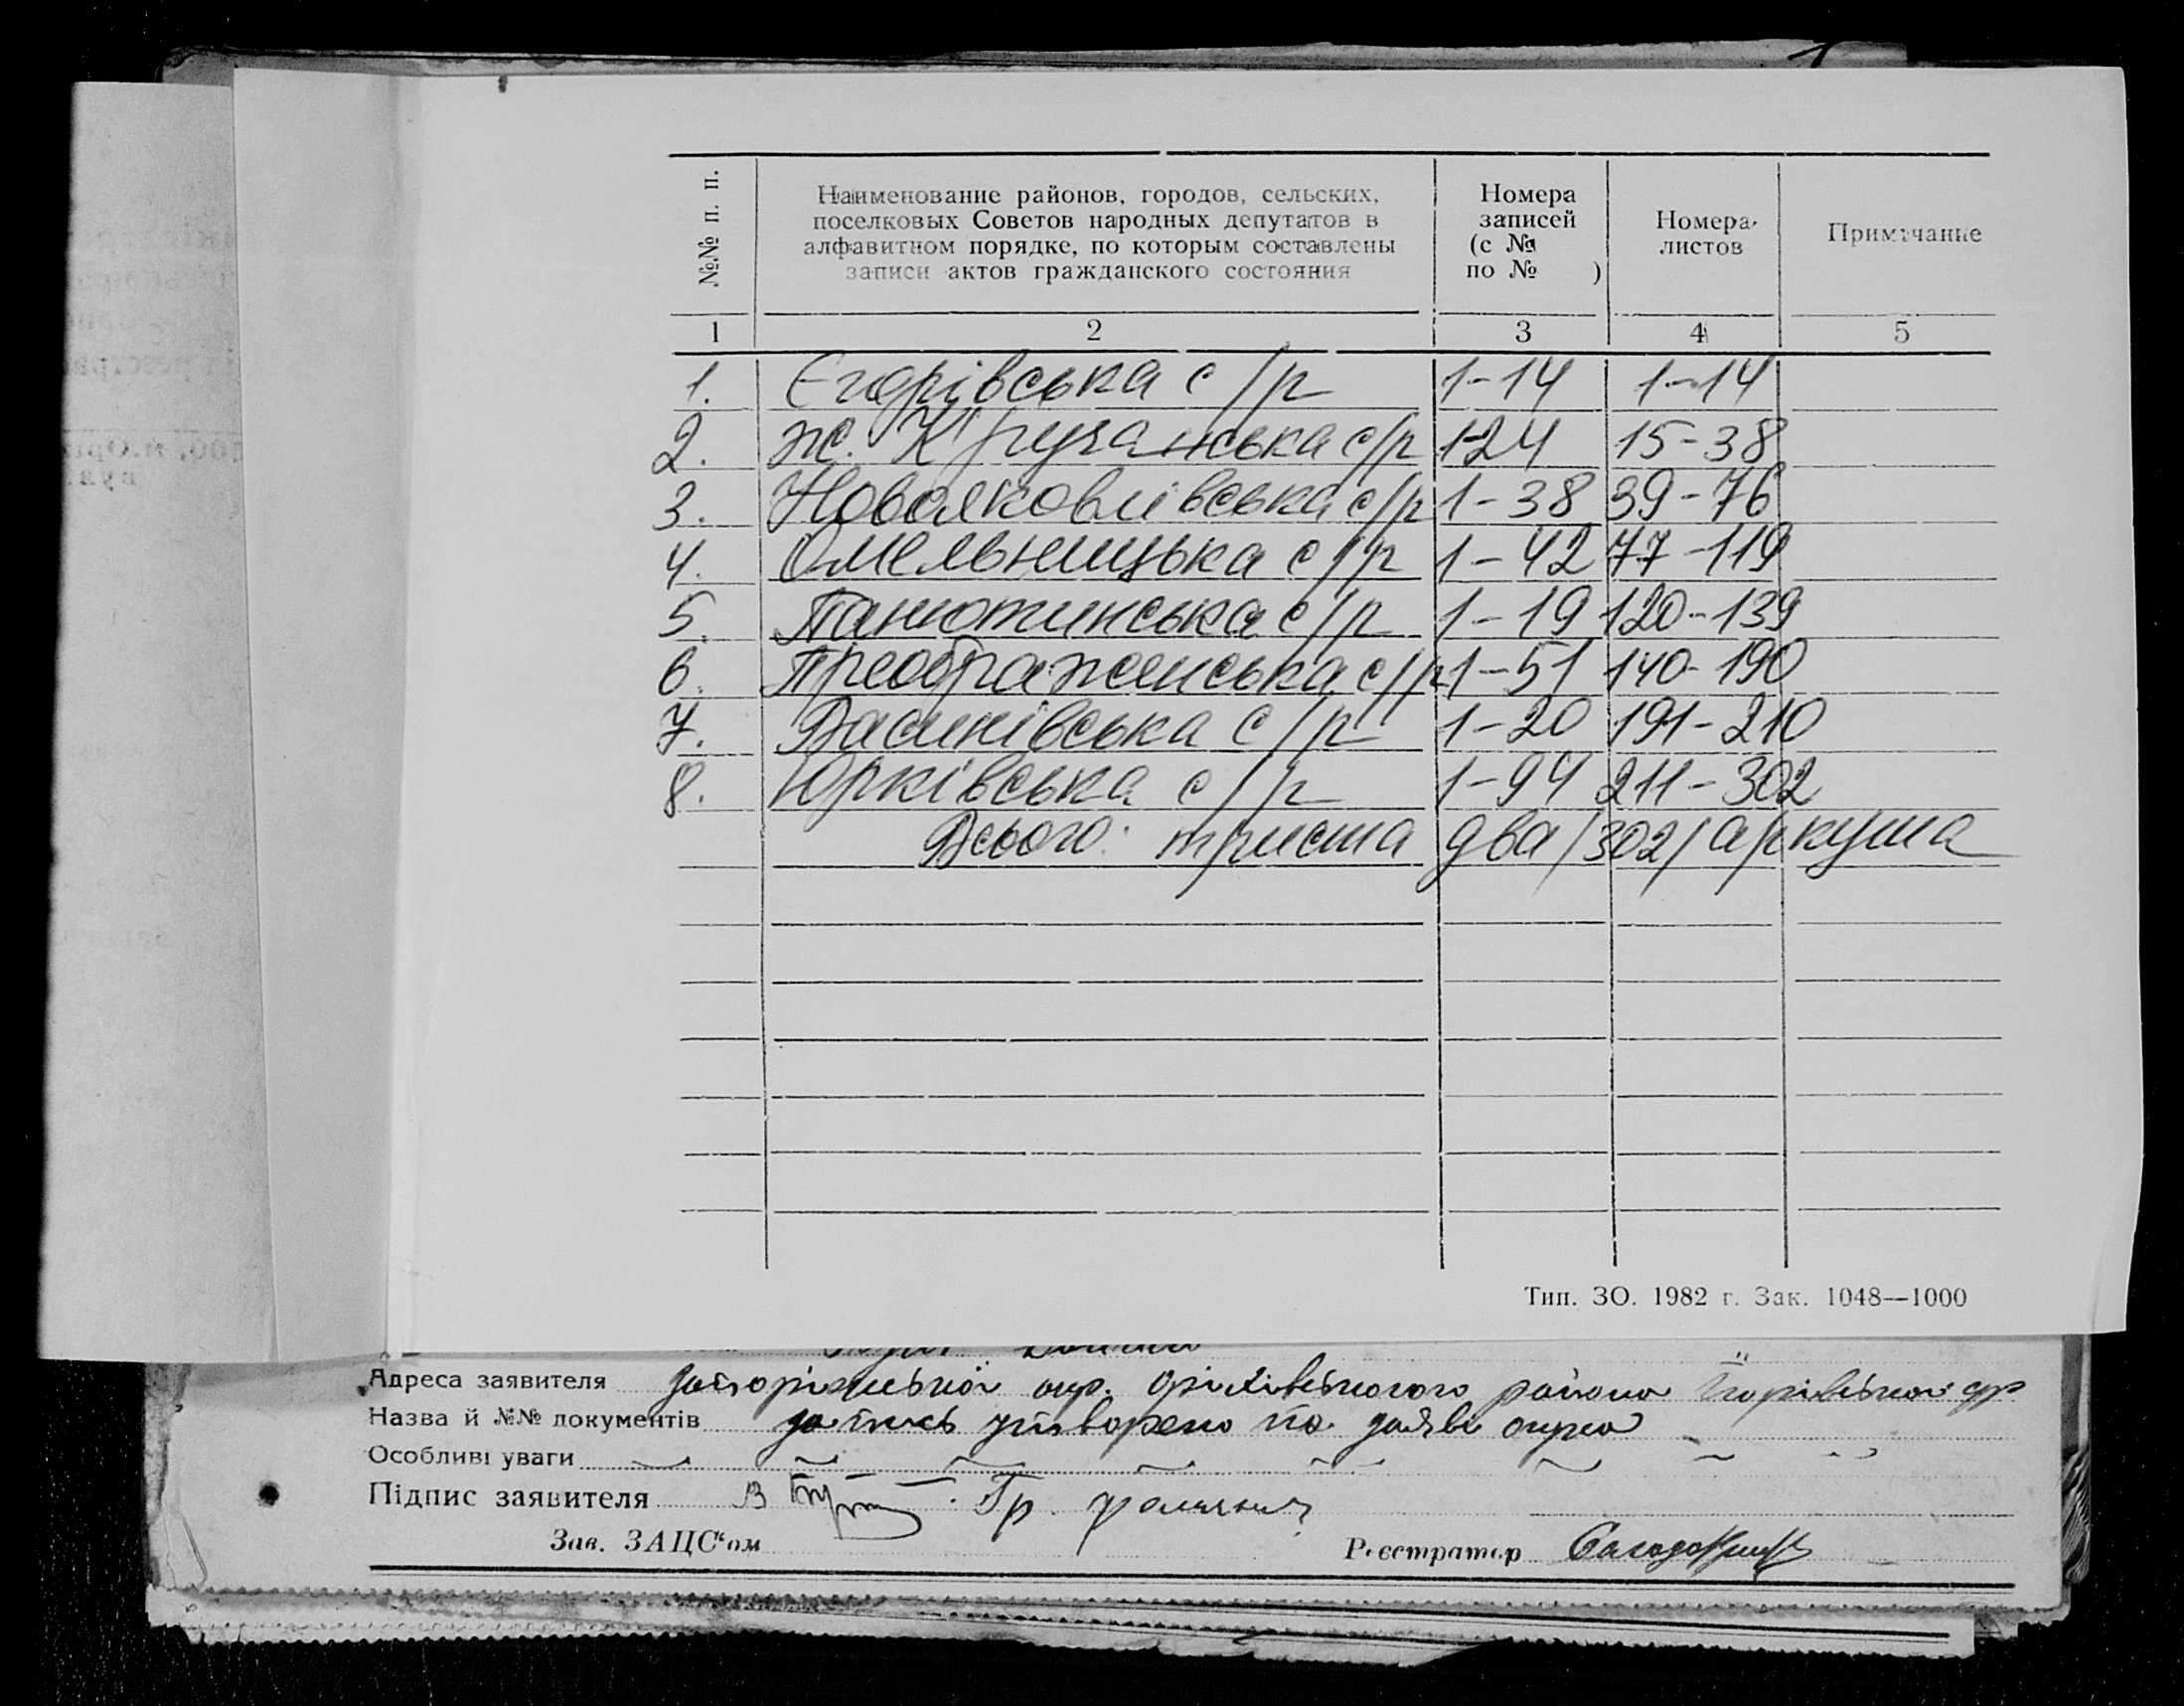 №№ п. п.
Наименование районов, городов, сельских,
поселковых Советов народных депутатов в
алфавитном порядке, по которым составлены
записи актов гражданского состояния
Номера
записей
(с №
по № )
Номера
листов
Примечание
1 2 3 4 5
1. Єгорівська с/р 1-14 1-14
2. ж. Кручанська с/р 1-24 15-38
3. Новояковлівська с/р 1-38 39-76
4. Омельницька с/р 1-42 77-119
5. Панютинська с/р 1-19 120-139
6. Преображенська с/р 1-51 140-190
7. Васинівська с/р 1-20 191-210
8. Юрківська с/р 1-94 211-302
Всього: триста два /302/ аркуша
Тип. ЗО. 1982 г. Зак. 1048—1000
Адреса заявителя Запоріжської окр. Оріхівського району Єгорівської с/р
Назва й №№ документів запись утворено по заяві
Особливі уваги
Підпис заявителя
Зав. ЗАЦС'ом Реєстратор